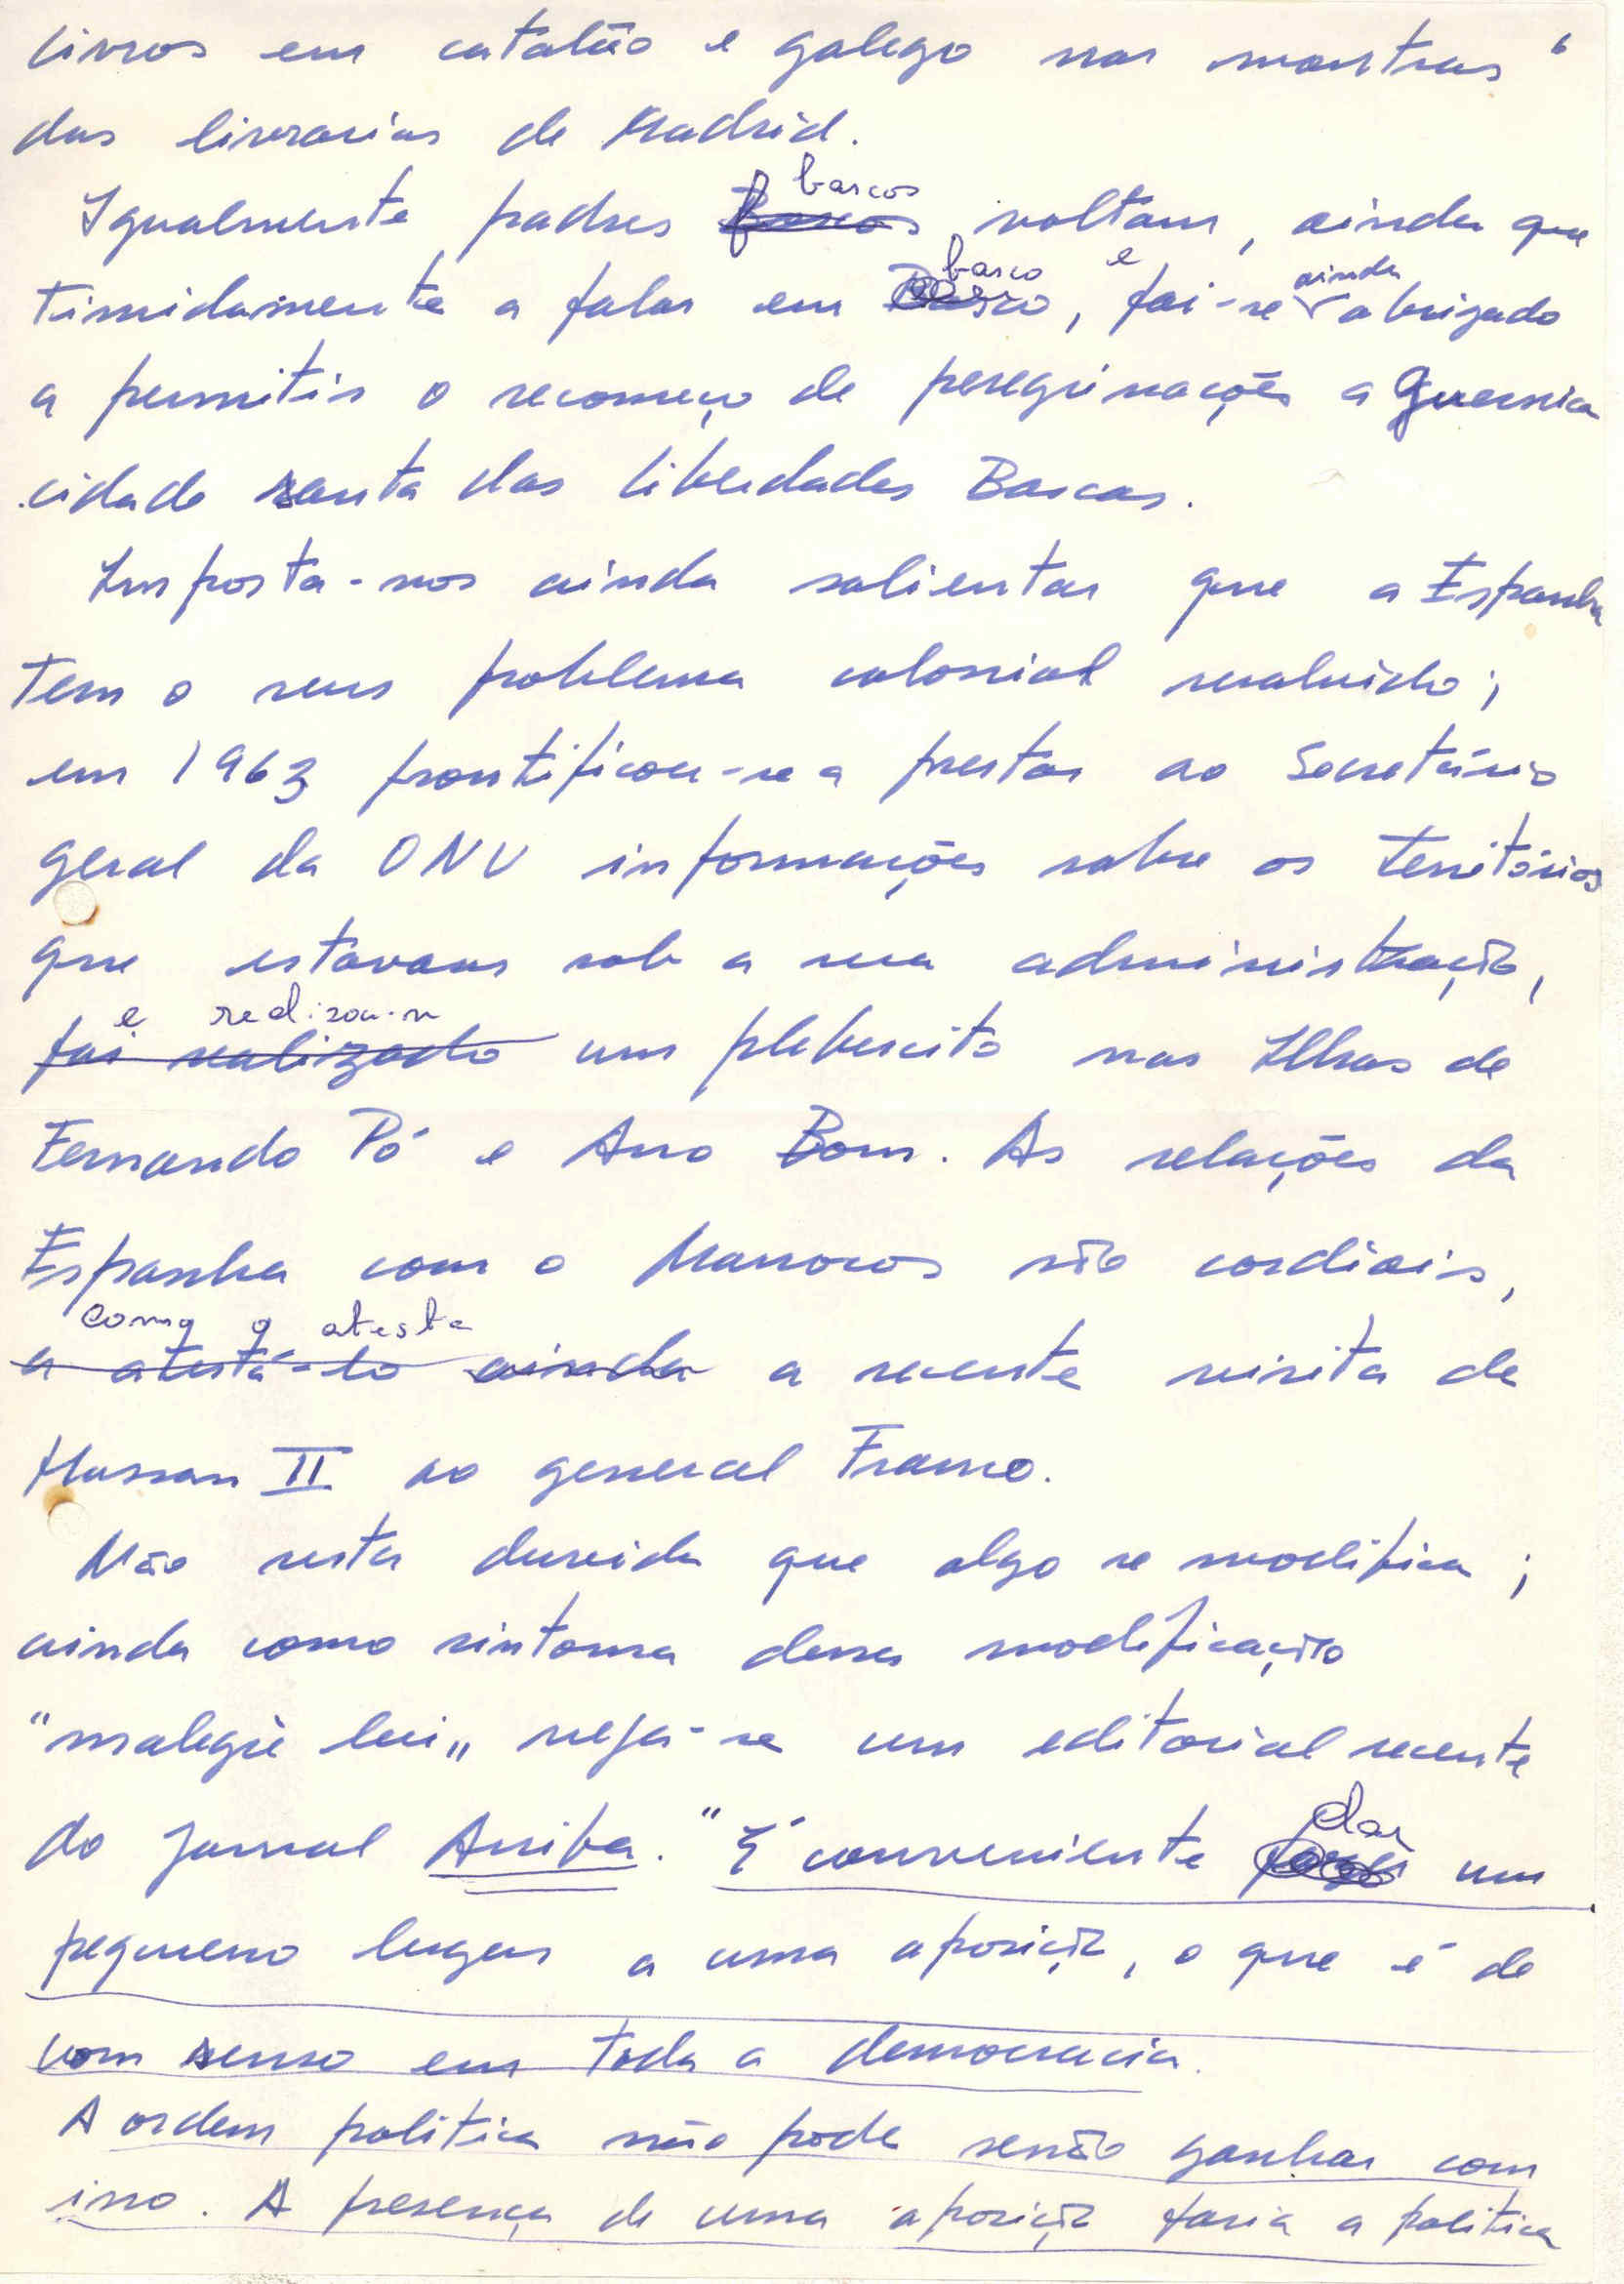 livros em catalão e galego nas montras 6
das livrarias de Madrid.
Igualmente padres bascos voltam, ainda que
timidamente a falar em basco, e foi-se ainda obrigado
a permitir o recomeço de peregrinações a Guernica
cidade santa das liberdades Bascas.
Importa-nos ainda salientar que a Espanha
tem o seus problema colonial resolvido;
em 1963 prontificou-se a prestar ao Secretário
geral da ONU informações sobre os territórios
que estavam sob a sua administração,
e realizou-se
foi realizado um plebescito nas Ilhas de
Fernando Pó e Ano Bom. As relações da
Espanha com o Marrocos são cordiais,
como o atesta
a atestá-lo ainda a recente visita de
Hassan II ao general Franco.
Não resta duvida que algo se modifica;
ainda como sintoma dessa modificação
"malegrè lui" veja-se um editorial recente
do jornal Arriba. "É conveniente dar um
pequeno lugar a uma oposição, o que é de
bom senso em toda a democracia.
A ordem politica não pode senão ganhar com
isso. A presença de uma oposição faria a politica